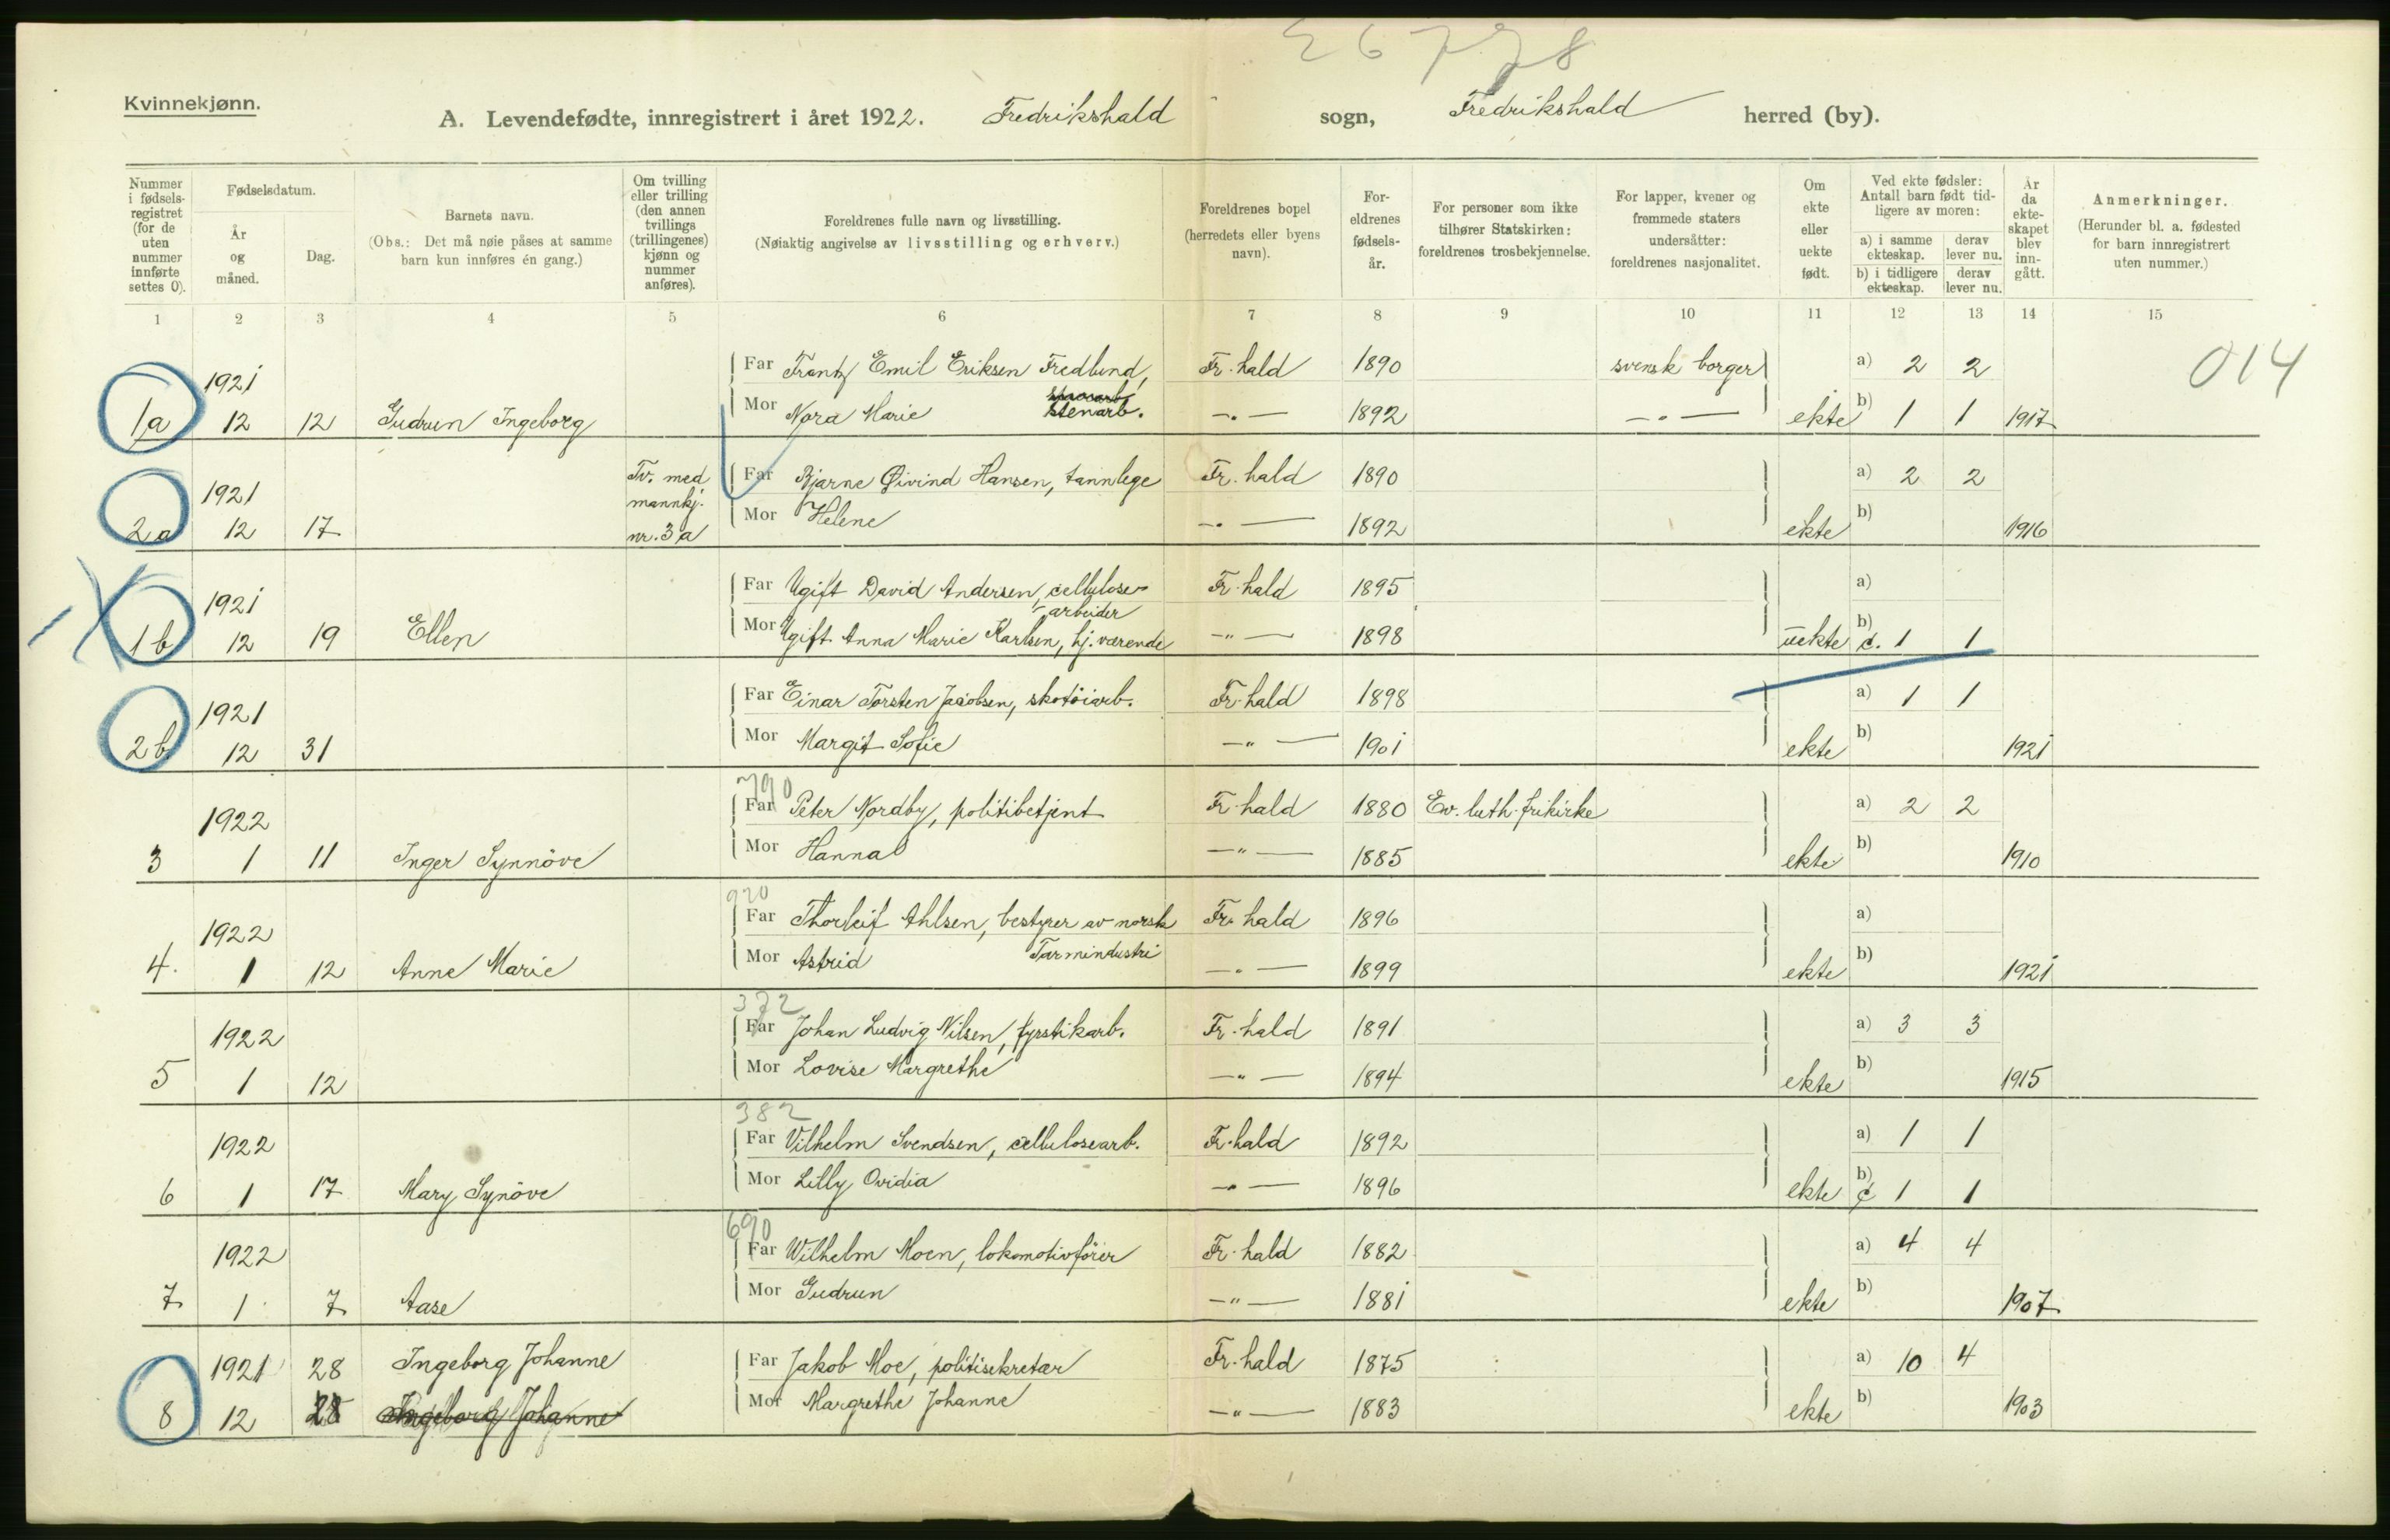 26778
Kvinnekjønn.
A. Levendefødte, innregistrert i året 1922. Fredrikshald sogn, Fredrikshald herred (by).
Nummer i fødsels-registret (for de uten nummer innførte settes 0).
Fødselsdatum.
År og måned.
Dag.
Barnets navn.
(Obs.: Det må nøie påses at samme barn kun innføres én gang.)
Om tvilling eller trilling (den annen tvillings (trillingenes) kjønn og nummer anføres).
Foreldrenes fulle navn og livsstilling.
(Nøiaktig angivelse av livsstilling og erhverv.)
Foreldrenes bopel (herredets eller byens navn).
For-eldrenes fødsels-år.
For personer som ikke tilhører Statskirken: foreldrenes trosbekjennelse.
For lapper, kvener og fremmede staters undersåtter: foreldrenes nasjonalitet.
Om ekte eller uekte født.
Ved ekte fødsler: Antall barn født tid-ligere av moren:
a) i samme ekteskap. derav lever nu.
b) i tidligere ekteskap. derav lever nu.
År da ekte-skapet blev inn-gått.
Anmerkninger.
(Herunder bl. a. fødested for barn innregistrert uten nummer.)
1 2 3 4 5 6 7 8 9 10 11 12 13 14 15
014
1921 Far Frantz Emil Eriksen Fredlund, Fr.hald 1890 svensk borger a) 2 2
1a 12 12 Gudrun Ingeborg Mor Nora Marie stenarb. —„— 1892 —„— ekte b) 1 1 1917
1921 Tv. med mannkj. nr. 3a Far Bjarne Øivind Hansen, tannlege Fr.hald 1890 a) 2 2
2a 12 17 Mor Helene —„— 1892 ekte b) 1916
1921 Far Ugift David Andersen, cellulose-arbeider Fr.hald 1895 a)
1b 12 19 Ellen Mor Ugift Anna Marie Karlsen, hj. værende —„— 1898 uekte b) c. 1 1
1921 Far Einar Torsten Jacobsen, skotöiarb. Fr.hald 1898 a) 1 1
2b 12 31 Mor Margit Sofie —„— 1901 ekte b) 1921
790
1922 Far Peter Nordby, politibetjent Fr.hald 1880 Ev. luth. frikirke a) 2 2
3 1 11 Inger Synnöve Mor Hanna —„— 1885 ekte b) 1910
920
1922 Far Thorleif Ahlsen, bestyrer av norsk Tarmindustri Fr.hald 1896 a)
4. 1 12 Anne Marie Mor Astrid —„— 1899 ekte b) 1921
372
1922 Far Johan Ludvig Nilsen, fyrstikarb. Fr.hald 1891 a) 3 3
5 1 12 Mor Lovise Margrethe —„— 1894 ekte b) 1915
382
1922 Far Vilhelm Svendsen, cellulosearb. Fr.hald 1892 a) 1 1
6 1 17 Mary Synöve Mor Lilly Ovidia —„— 1896 ekte b) c 1 1
690
1922 Far Wilhelm Moen, lokomotivförer Fr.hald 1882 a) 4 4
7 1 7 Aase Mor Gudrun —„— 1881 ekte b) 1907
1921 28 Ingeborg Johanne Far Jakob Moe, politisekretær Fr.hald 1875 a) 10 4
8 12 28 Ingeborg Johanne Mor Margrethe Johanne —„— 1883 ekte b) 1903